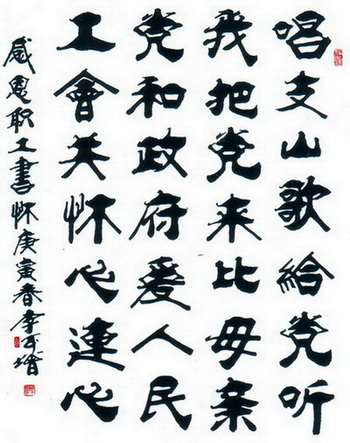 唱支山歌给党听
我把党来比母亲
党和政府爱人民
工會关怀心連心
感恩职工書怀庚寅春李